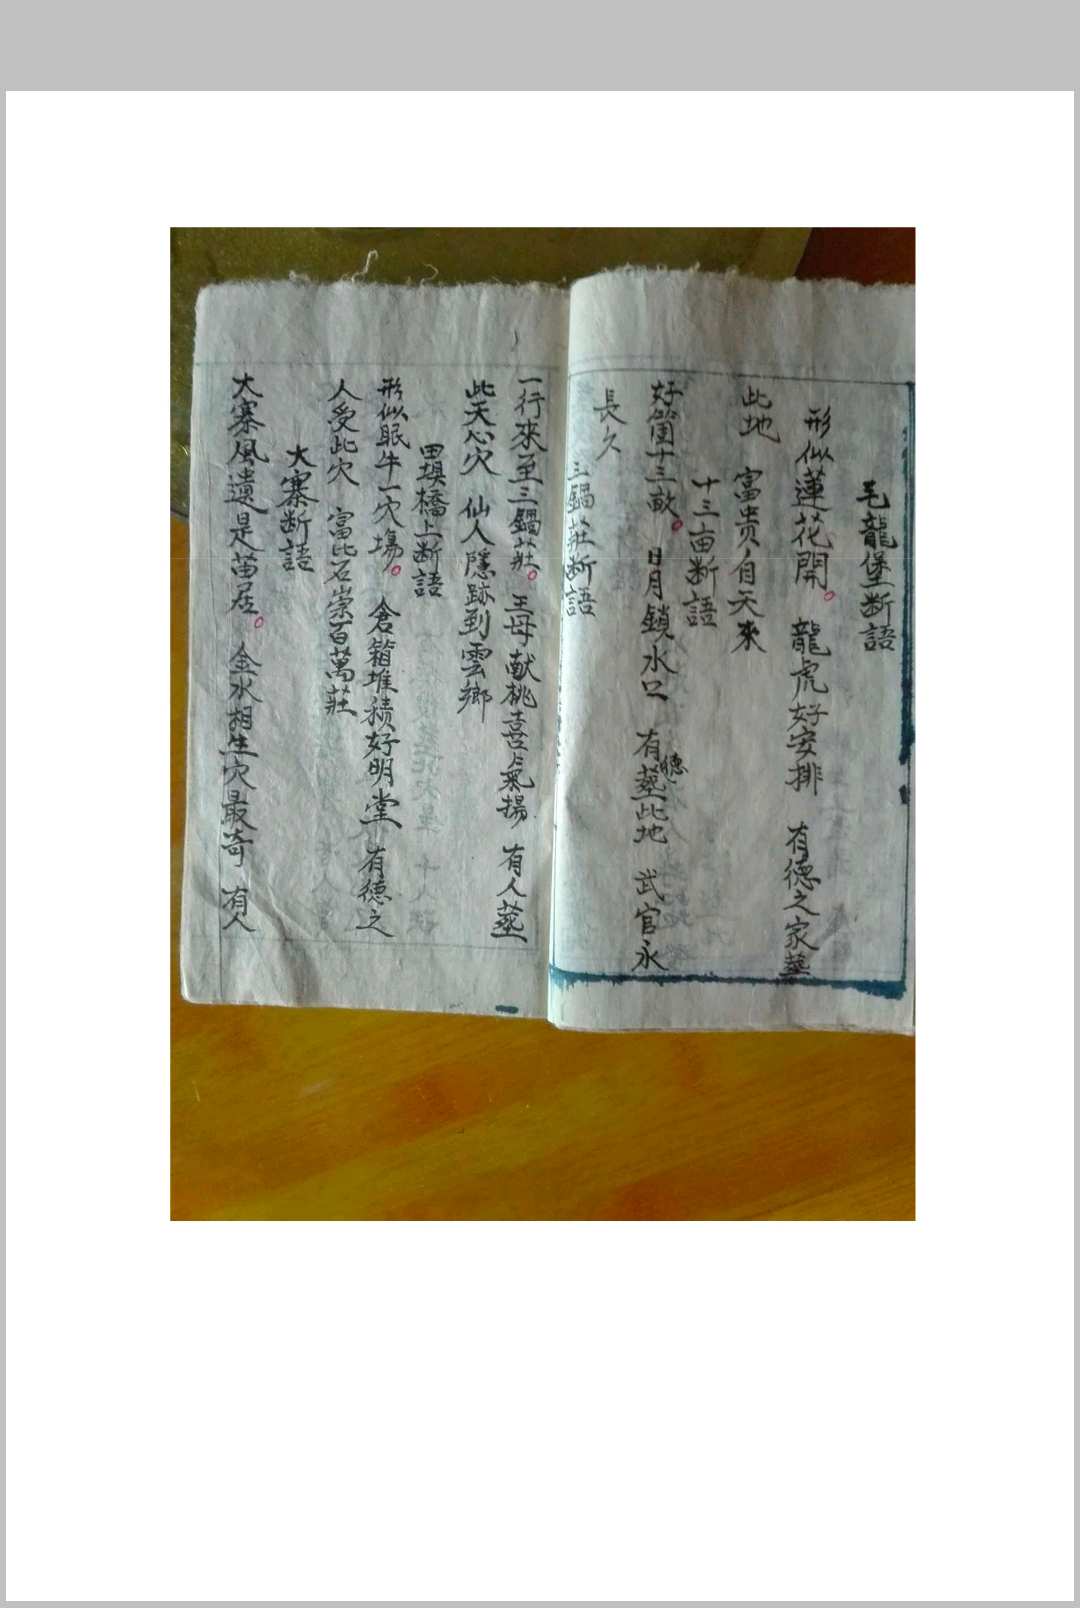 毛龍堡断語
形似蓮花開。龍虎好安排 有德之家塟
此地 富贵自天來
十三亩断語
好箇十三畝。日月鎖水口 有德塟此地 武官永
長久
三鍋莊断語
一行來至三鍋莊。王母献桃喜氣揚 有人塟
此天心穴 仙人隱跡到雲鄉
田埧橋上断語
形似眠牛一穴塲。倉箱堆積好明堂 有德之
人受此穴 富比石崇百萬莊
大寨断語
大寨風遺是苗居。金水相生穴最奇 有人